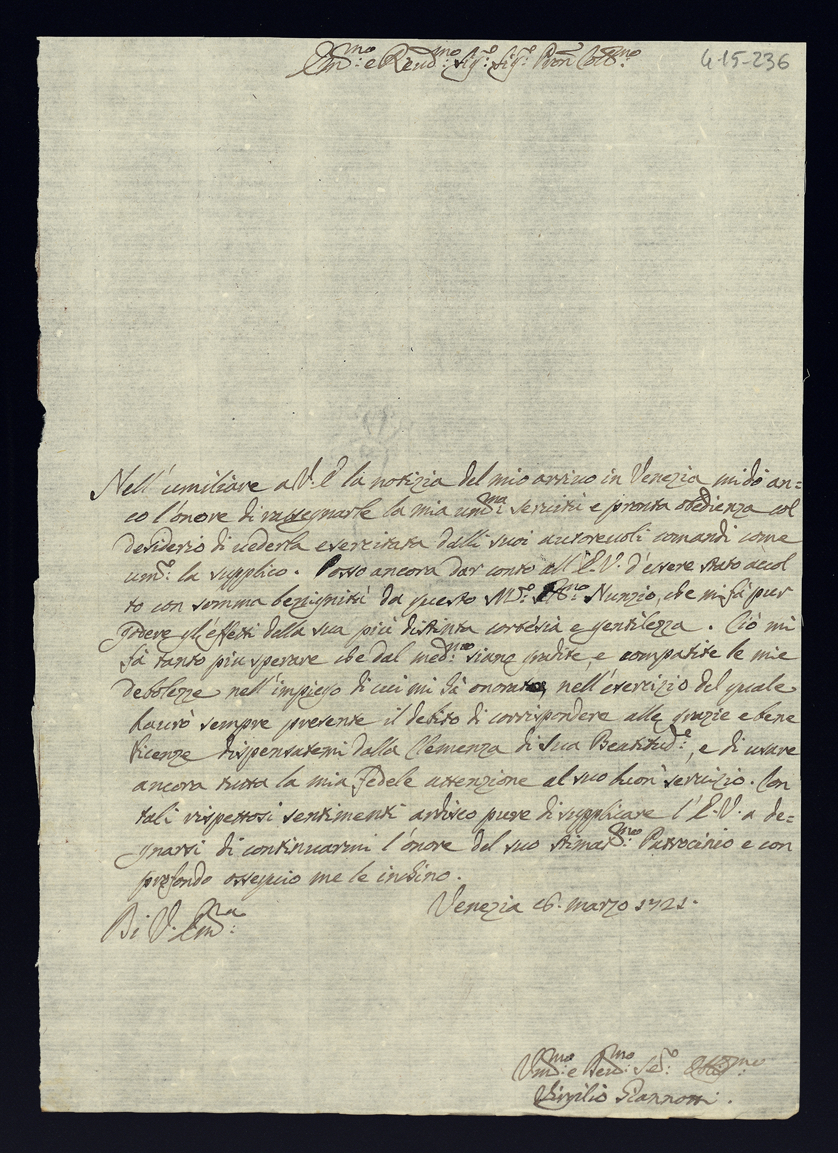 Em.mo e Rend.mo Sig.e Sig.e Pron Coll.mo
4-15-236
Nell'umiliare a V.E. la notizia del mio arrivo in Venezia mi dò an=
co l'onore di rassegnarle la mia um.ma servitù e pronta obedienza col
desiderio di vederla esercitata dalli suoi autorevoli comandi come
um.e la supplico. Posso ancora dar conto all'E.V. d'essere stato accol
to con somma benignità da questo M.e Nunzio, che mi fà pur
godere gl'effetti della sua più distinta cortesia e gentilezza. Ciò mi
fà tanto piu sperare che dal med.mo siano gradite, e compatite le mie
debolezze nell'impiego di cui mi hà onorato, nell'esercizio del quale
haurò sempre presente il debito di corrispondere alle grazie e bene
ficenze dispensatemi dalla Clemenza di Sua Beatitud.e, e di usare
ancora tutta la mia fedele attenzione al suo buon servizio. Con
tali rispettosi sentimenti ardisco pure di supplicare l'E.V. a de=
gnarsi di continuarmi l'onore del suo stimat.mo Patrocinio e con
profondo ossequio me le inchino.
Venezia 16. marzo 1721.
Di V. Em.za
Um.mo e Rend.mo Se.o
Virgilio Giannotti.